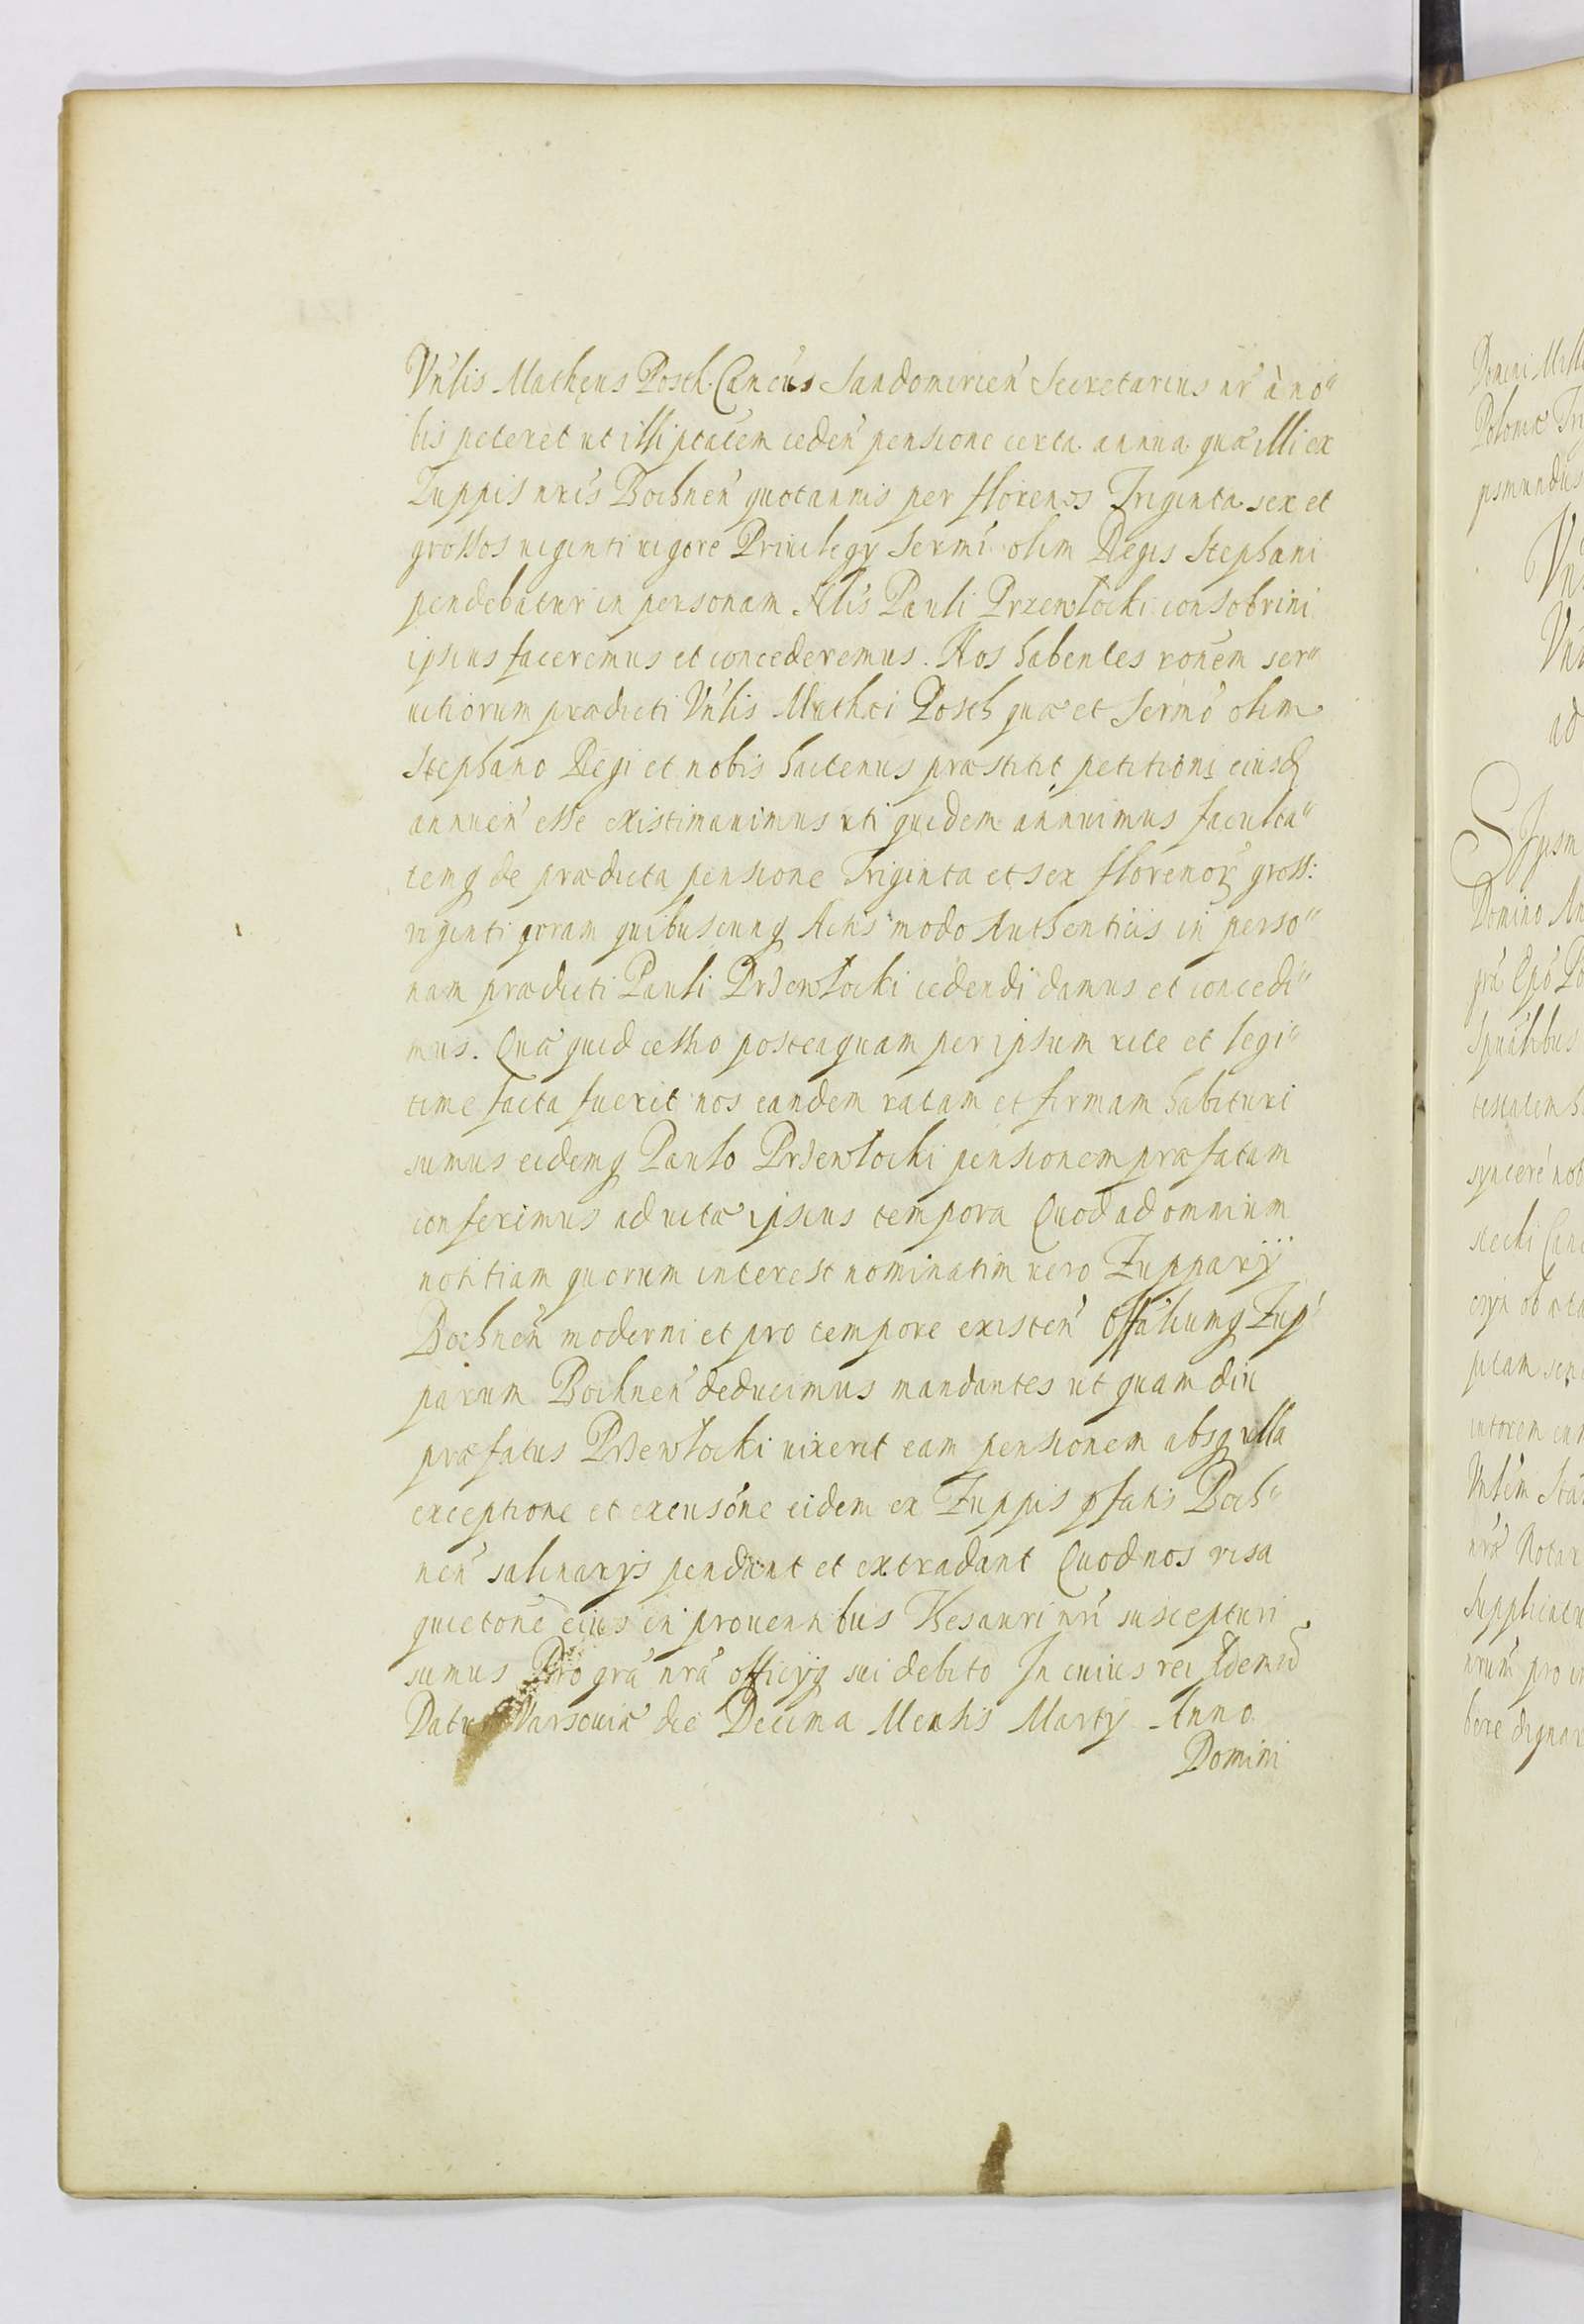 Vn'lis Matheus Posth Can'cus Sandomirien' Secretarius nr' à no"
bis peteret ut illi ptatem ceden' pensione certa annua quæ illi ex
Zuppis nris Bochnen' quotannis per florenos Triginta sex et
grossos uiginti uigore Priuilegy Sermi olim Regis Stephani
pendebatur in personam Nlis Pauli Przewłocki consobrini
ipsius faceremus et concederemus. Nos habentes ronem ser"
uitiorum prædicti Vn'lis Mathei Posth quæ et Sermo olim
Stephano Regi et nobis hactenus præstitit petitioni eiusd
annuen' esse existimauimus uti quidem annuimus faculta"
temq de prædicta pensione Triginta et sex floreno℞ gross:
viginti coram quibuscunq Actis modo Authenticis in perso"
nam prædicti Pauli Przewłocki cedendi damus et concedi"
mus. Quæ quid cessio posteaquam per ipsum rite et legi"
time facta fuerit nos eandem ratam et firmam habituri
sumus eidemq Paulo Przewłocki pensionem præfatam
conferimus ad uitæ ipsius tempora Quod ad omnium
notitiam quorum interest nominatim uero Zupparÿ
Bochnen' moderni et pro tempore existen' Offaliumq Zup"
parum Bochnen' deducimus mandantes ut quam diu
præfatus Przewłocki uixerit eam pensionem absq ulla
exceptione et excusone eidem ex Zuppis pfatis Boch"
nen' salinarys pendant et extradant Quod nos visa
quietone eius in prouentibus Thesauri nri suscepturi
sumus Pro gra' nra' officyq sui debito In cuius rei fidem
Datum Varsouiæ die Decima Mensis Marty Anno
Domini
Domini
Poloniæ
Vn
ad
Domino
testatem
syncere
Notar
pro